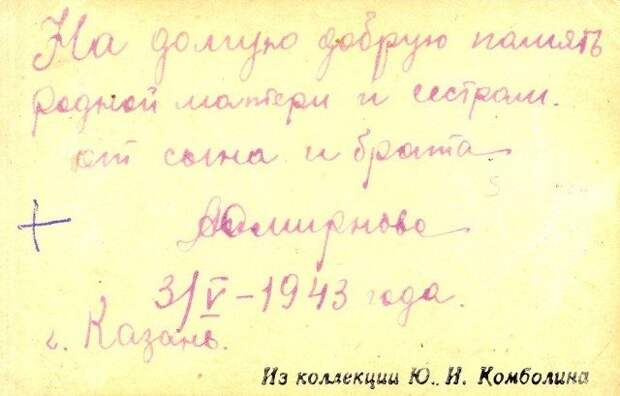 На долгую добрую память
родной матери и сестрам.
от сына и брата
АСмирнова
3/V-1943 года.
г. Казань.
Из коллекции Ю. И. Комболина